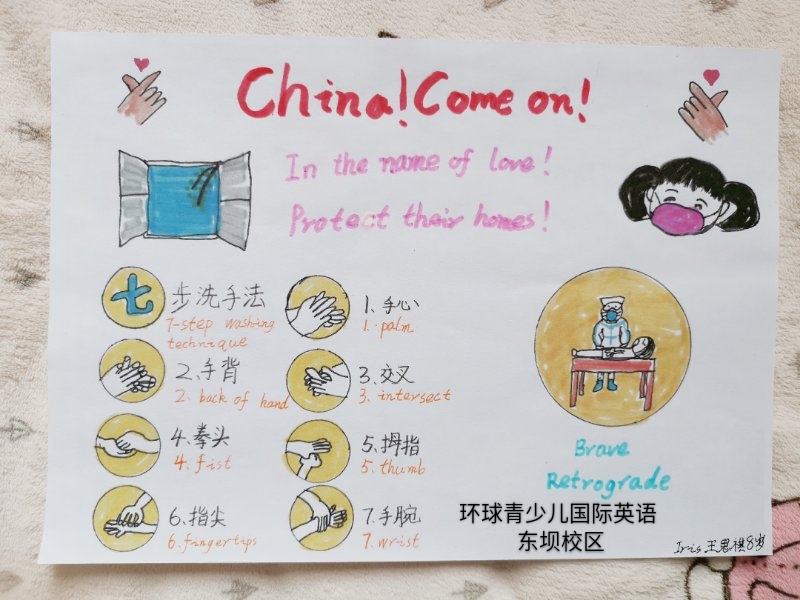 China! Come on!
In the name of love!
Protect their homes!
七步洗手法
7-step washing
technique
1.手心
1.palm
2.手背
2.back of hand
3.交叉
3.intersect
4.拳头
4.fist
5.拇指
5.thumb
6.指尖
6.fingertips
7.手腕
7.wrist
Brave
Retrograde
环球青少儿国际英语
东坝校区
Iris 王思祺8岁